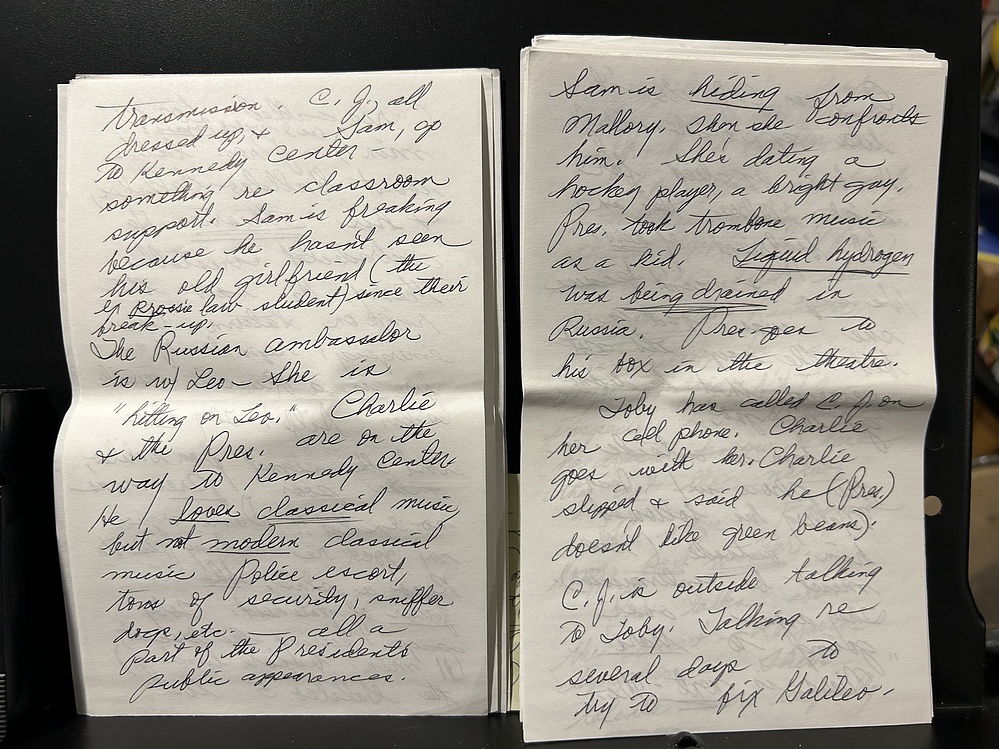 transmission. C. J., all
dressed up, & Sam, go
to Kennedy Center -
something re classroom
support. Sam is freaking
because he hasn't seen
his old girlfriend (the
law student) since their
break-up.
The Russian ambassador
is w/ Leo - She is
"hitting on Leo." Charlie
& the Pres. are on the
way to Kennedy Center
He loves classical music,
but not modern classical
music Police escort,
tons of security, sniffer
dogs, etc. - all a
part of the Presidents
public appearances.
Sam is hiding from
Mallory. Then she confronts
him. She's dating a
hockey player, a bright guy.
Pres. took trombone music
as a kid. Liquid hydrogen
was being drained in
Russia. Pres. goes to
his box in the theatre.
Toby has called C. J. on
her cell phone. Charlie
goes with her. Charlie
slipped & said he (Pres.)
doesn't like green beans).
C. J. is outside talking
to Toby. Talking re
several days to
try to fix Galileo -